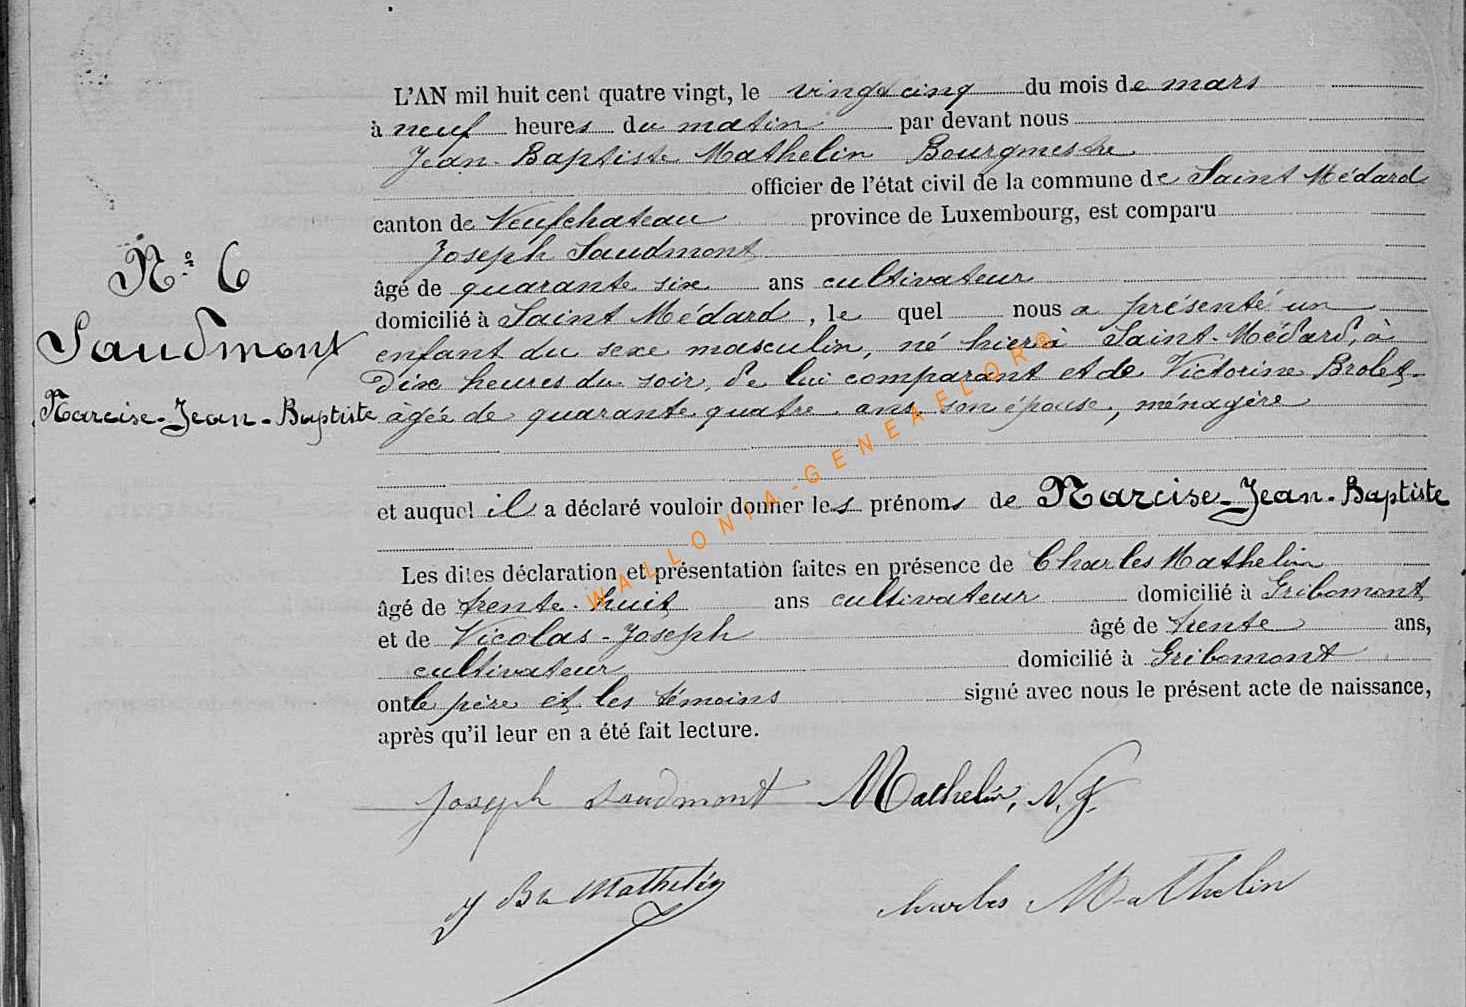 L'AN mil huit cent quatre vingt, le vingt cinq du mois de mars
à neuf heures du matin par devant nous
Jean-Baptiste Mathelin Bourgmestre
officier de l'état civil de la commune de Saint Médard
canton de Neufchateau province de Luxembourg, est comparu
Joseph Saudmont
âgé de quarante six ans cultivateur
domicilié à Saint Médard, le quel nous a présenté un
enfant du sexe masculin, né hier à Saint-Médard, à
dix heures du soir, de lui comparant et de Victorine Brolet
âgée de quarante quatre ans son épouse, ménagère
et auquel il a déclaré vouloir donner les prénoms de Narcise-Jean-Baptiste
Les dites déclaration et présentation faites en présence de Charles Mathelin
âgé de trente-huit ans cultivateur domicilié à Gribomont
et de Nicolas-Joseph âgé de trente ans,
cultivateur domicilié à Gribomont
ont le père et les témoins signé avec nous le présent acte de naissance,
après qu'il leur en a été fait lecture.
Joseph Saudmont Mathelin, N. J.
J Bte Mathelin Charles Mathelin
N.º 6
Saudmont
Narcise-Jean-Baptiste
WALLONIA-GENEAELOR®